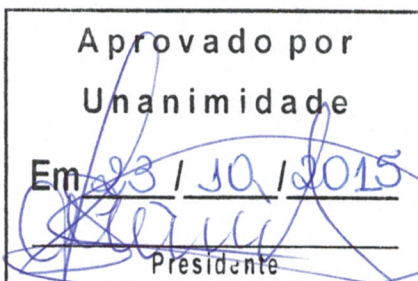 Aprovado por
Unanimidade
Em 23 / 10 / 2015
Presidente